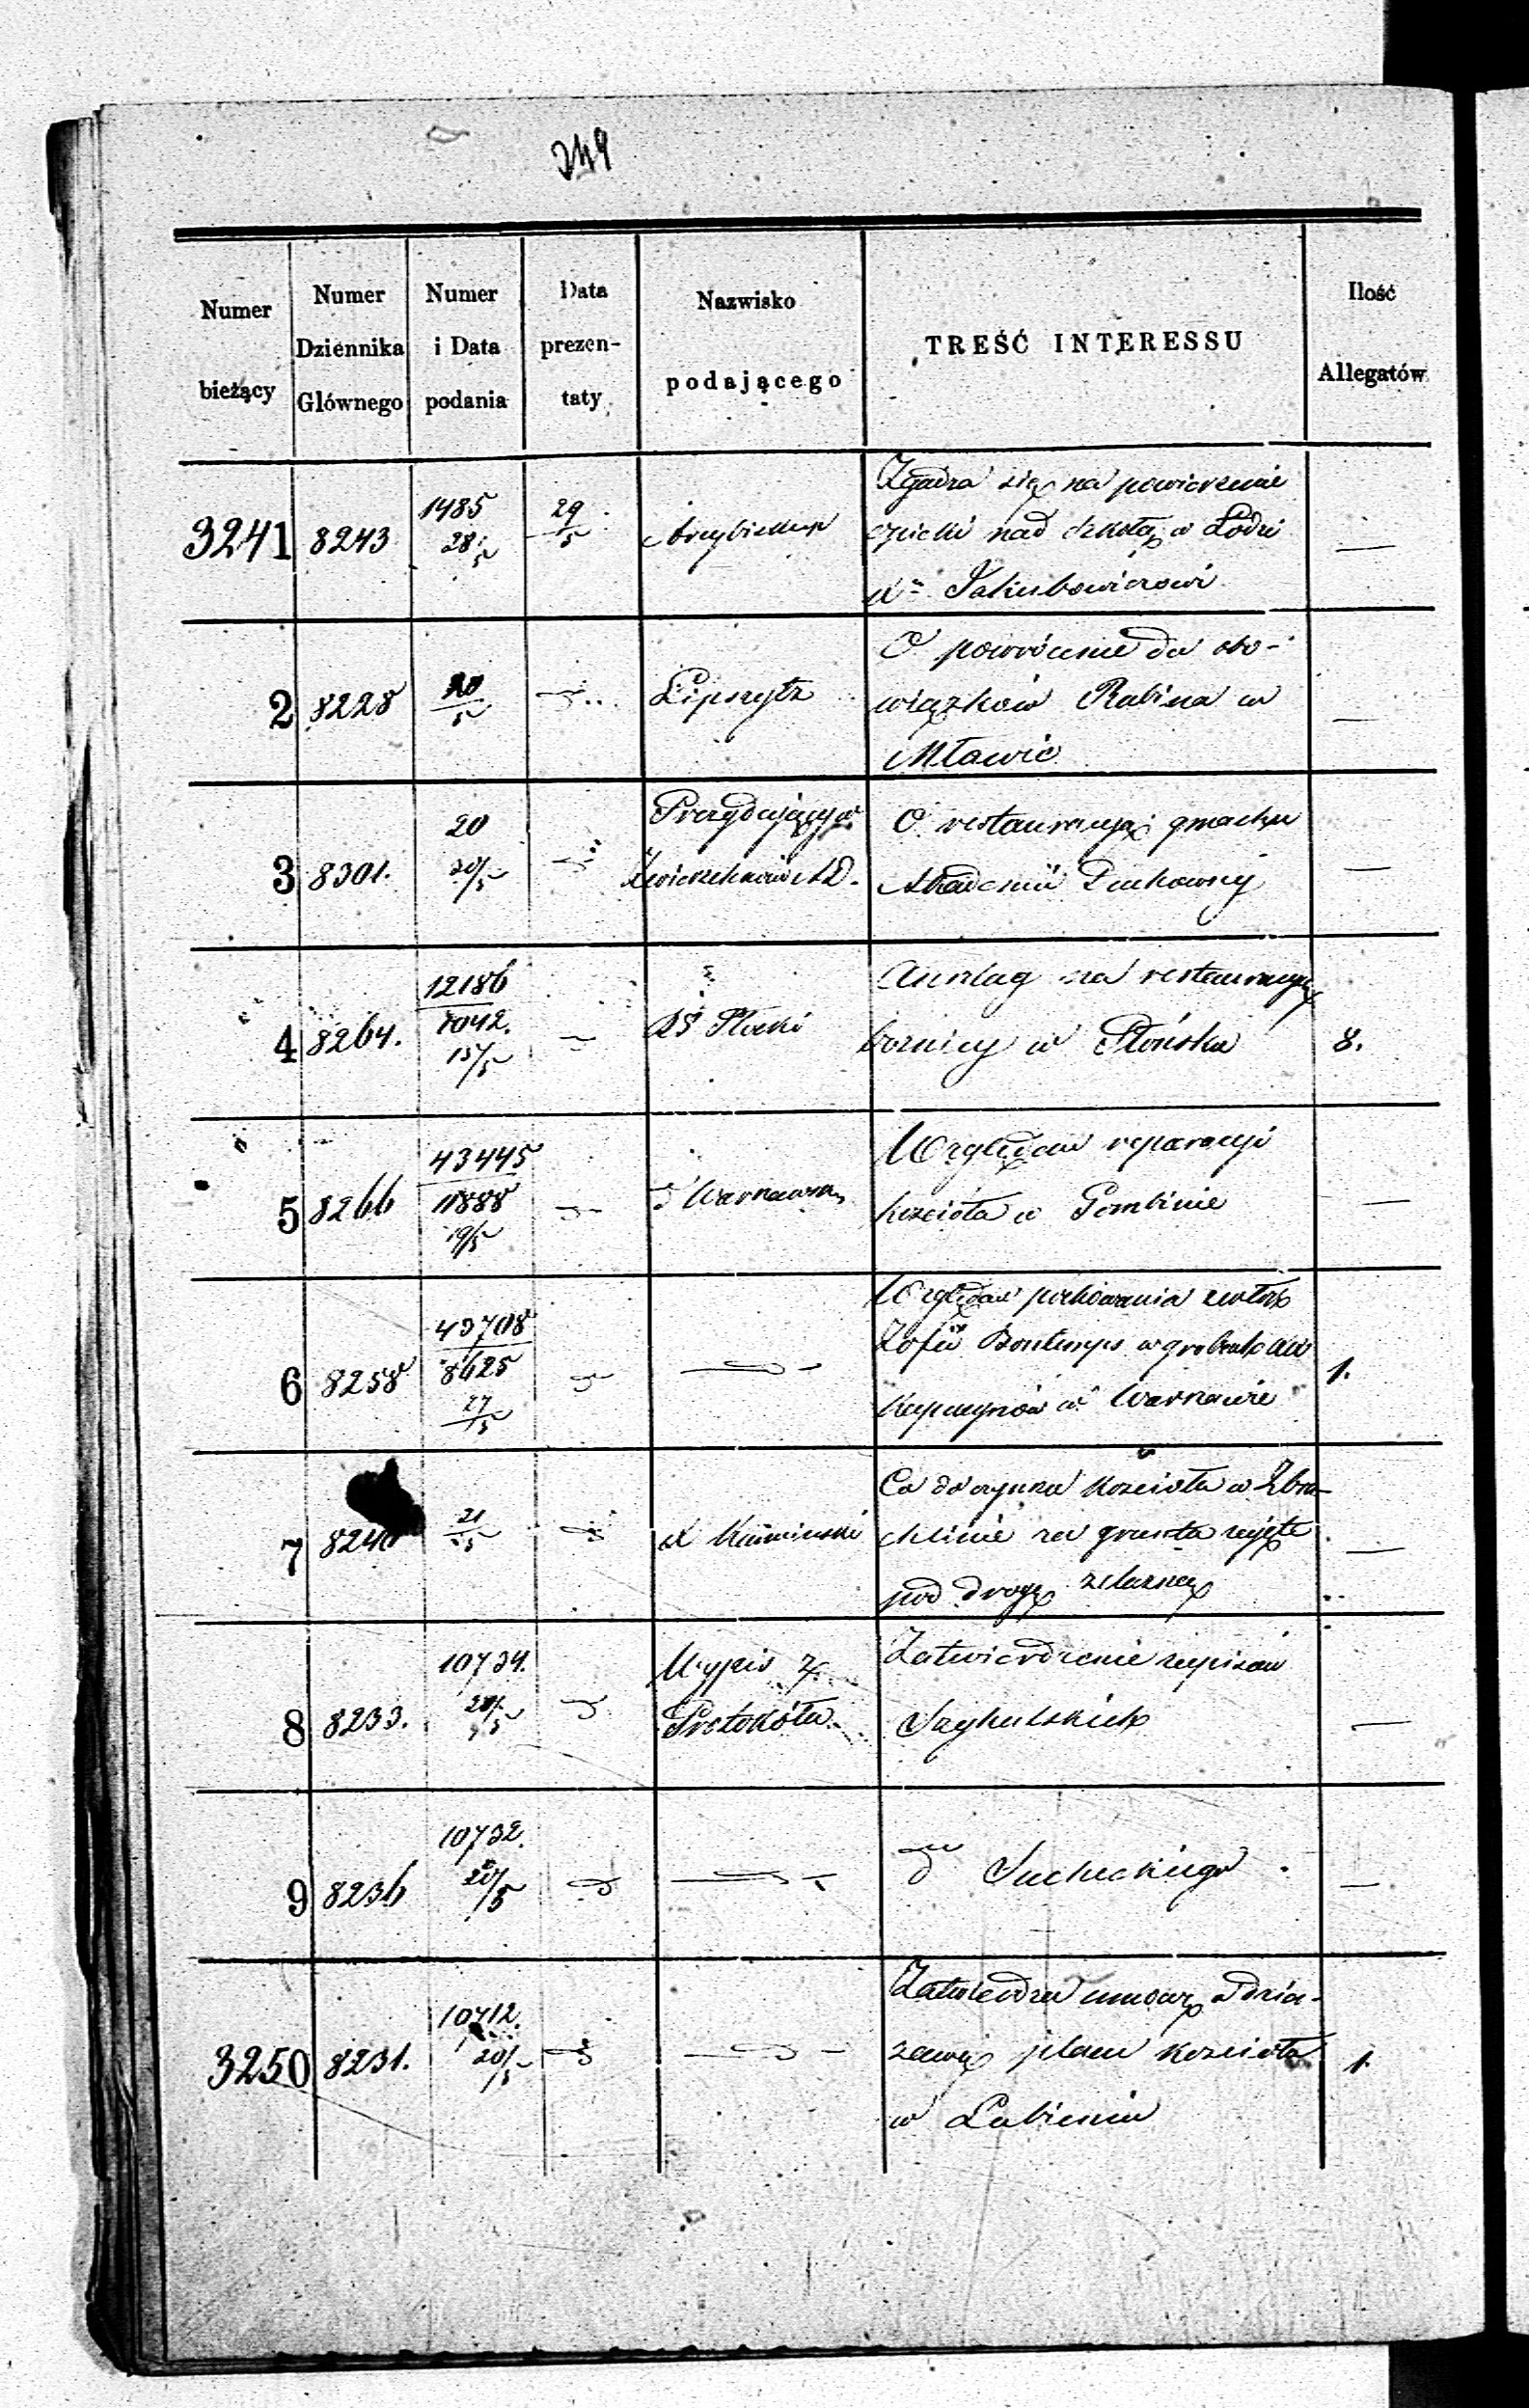 349
Numer bieżący
Numer Dziennika Głównego
Numer i Data podania
Data prezen-taty
Nazwisko podającego
TREŚĆ INTERESSU
Ilość Allegatów
3241 8243 1485 28/5 29/5 Arcybiskup
Zgadza się na powierzenie
opieki nad szkołą w Łodzi
Xu Jakubowiczowi —
2 8228 20/5 Lipszytz
O powrócenie do obo-
wiązków Rabina w
Mławie —
3 8301. 20 20/5 Prezydujący w Zwierzchność AD.
O restauracyą gmachu
Akademii Duchownej —
4 8264. 12186/7042. 15/5 RG Płocki
Anszlag na restauracyą
boznicy w Płońsku 8.
5 8266 43445/11888 19/5 d Warszawski
Względem reparacyi
kościoła w Gombinie —
6 8258 43708/8625 27/5
Względem pochowania zwłok
Zofii Bontemps w grobach xx
Kapucynów w Warszawie 1.
7 21/5 X Kamiński
Co do czynsza kościoła w Zbra-
chlinie za grunta zajęte
pod drogę żelazną —
8 8233. 10734. 20/5 Wypis z Protokółu
Zatwierdzenie zapisów
—
9 8236 10732. 20/5
d Sucheckiego —
3250 8231. 10712. 20/5
Zatwierdza umowę o dzier-
żawę placu kościoła
w Lubieniu 1.